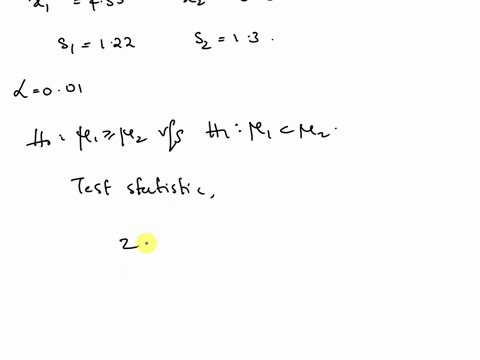 S₁ = 1.22 S₂ = 1.3 .
α = 0.01
H₀ : μ₁ ≥ μ₂ v/s H₁ : μ₁ < μ₂ .
Test statistic,
z